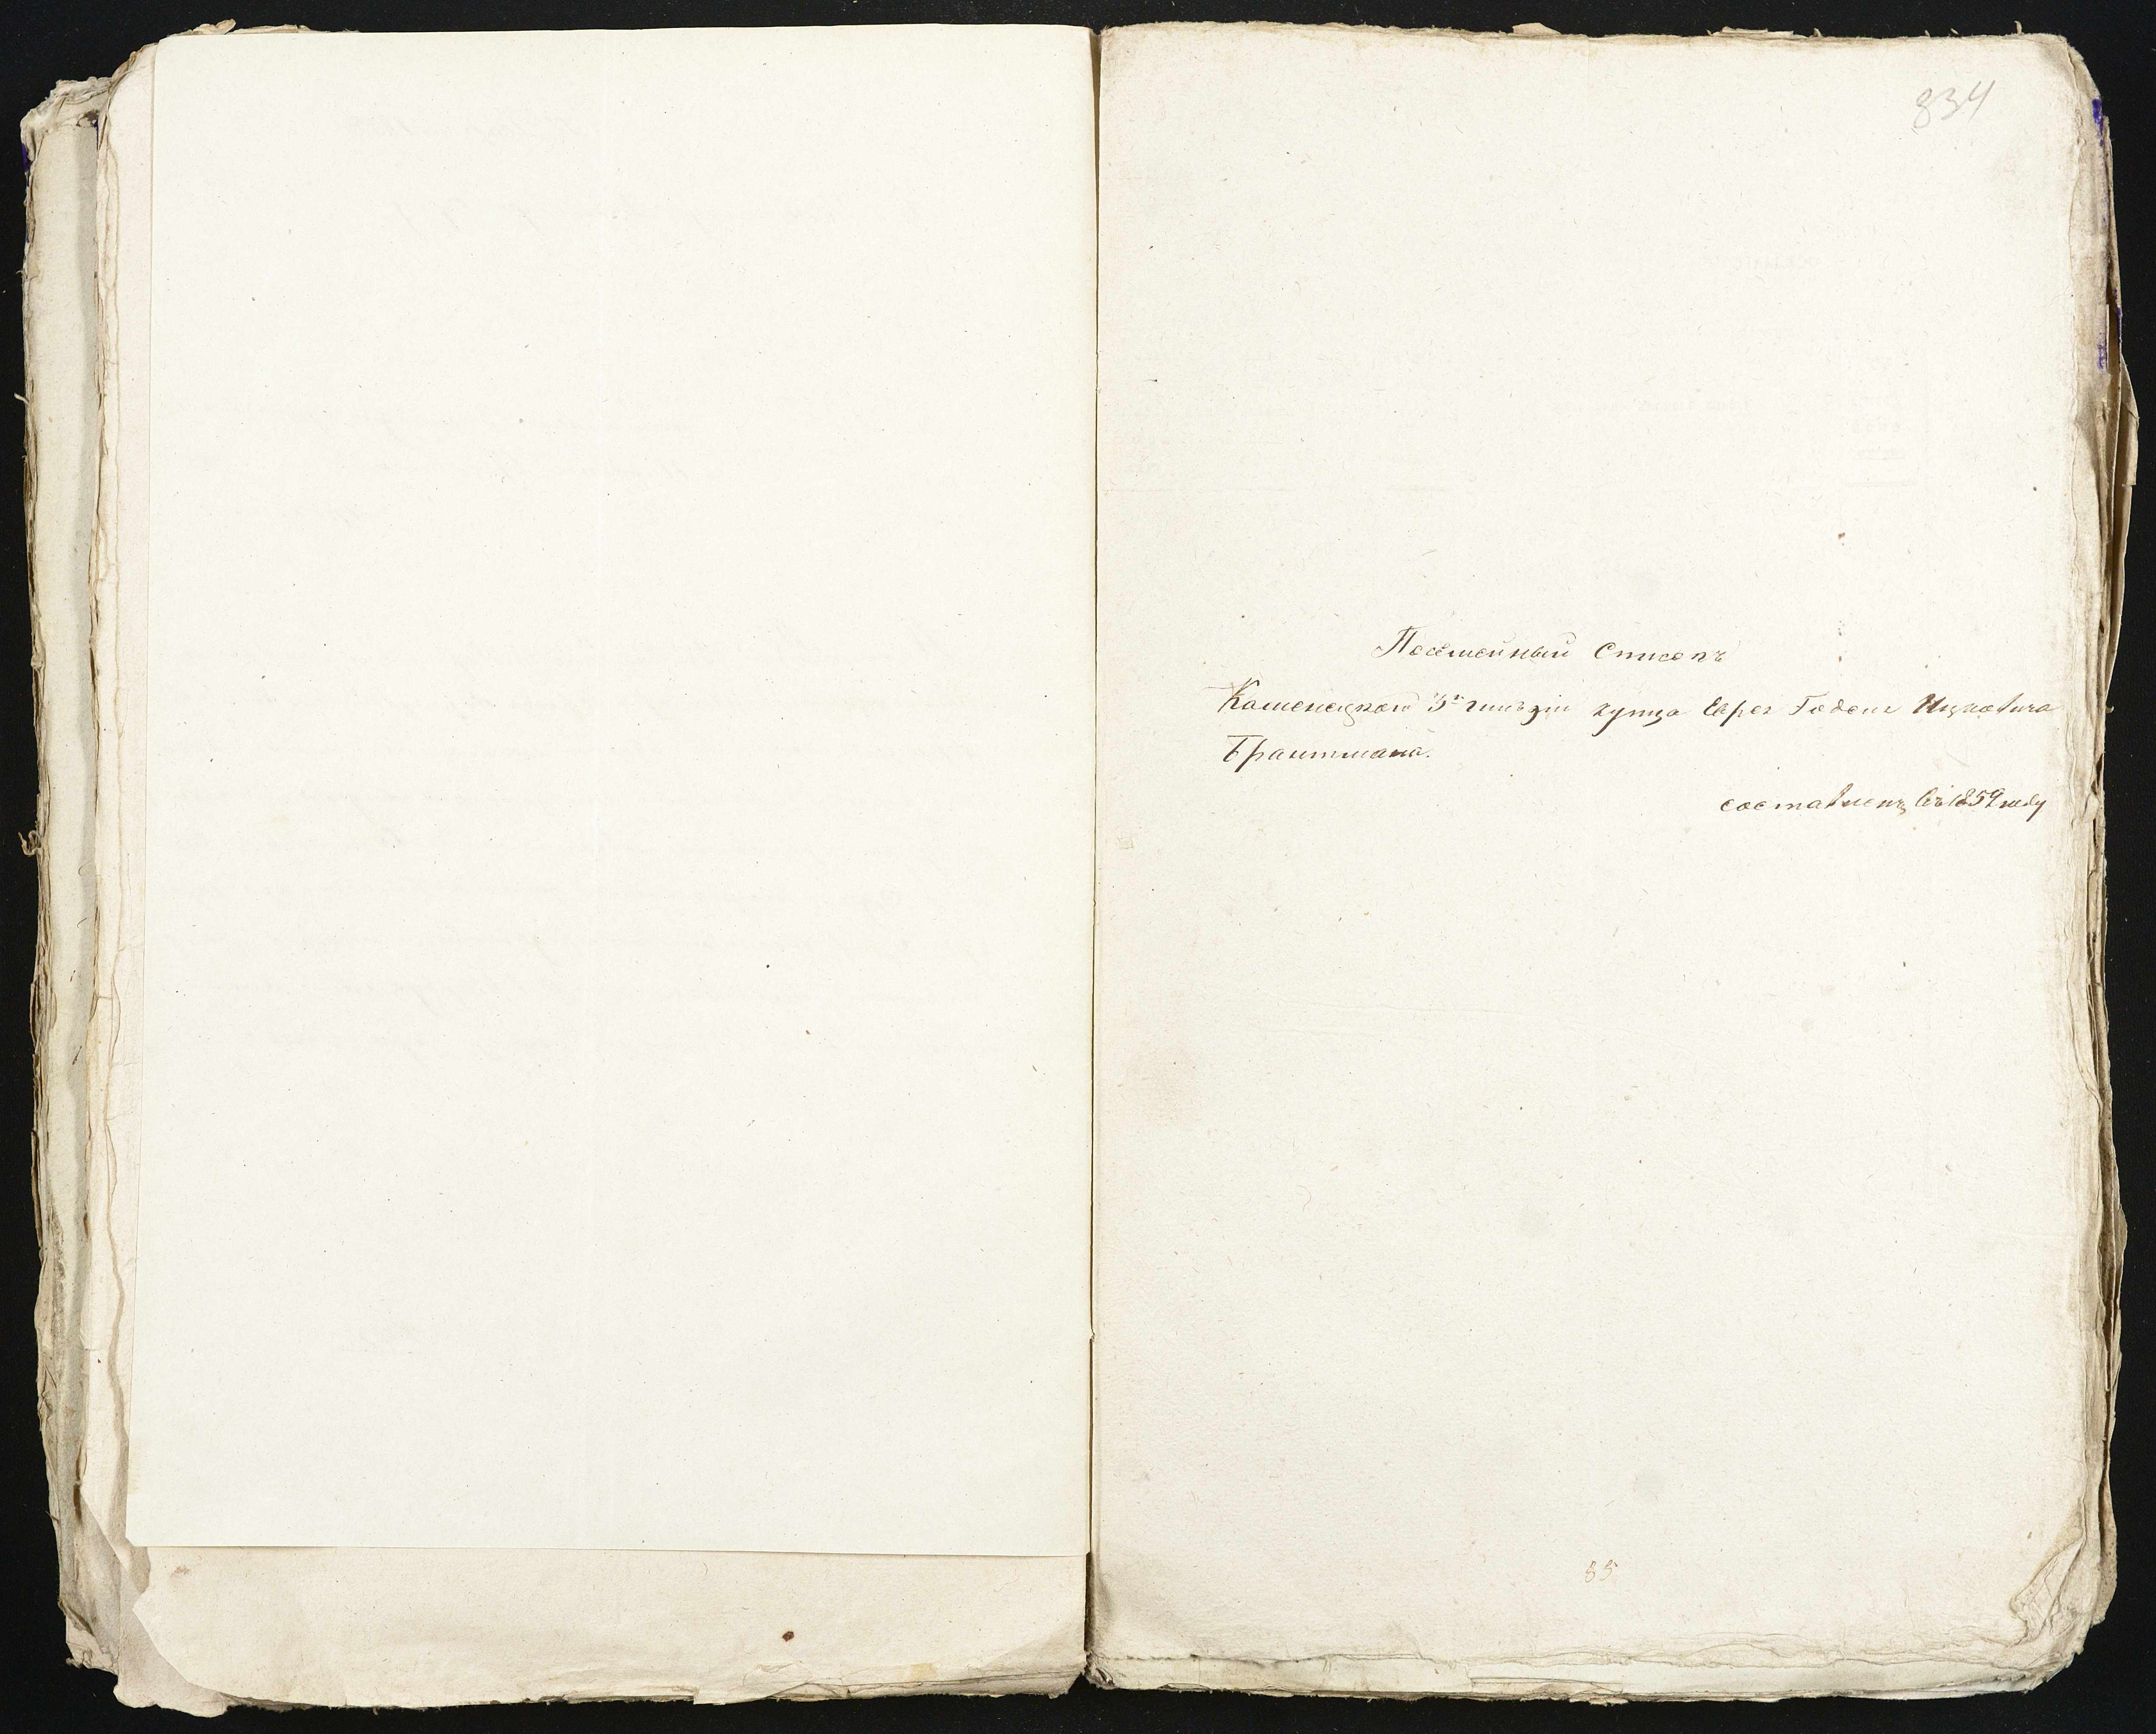 834
Посемейный Списокъ
Каменецкаго 3й гильдіи купца Еврея Годеля Ицковича
Брантмана.
составленъ въ 1859 году
85